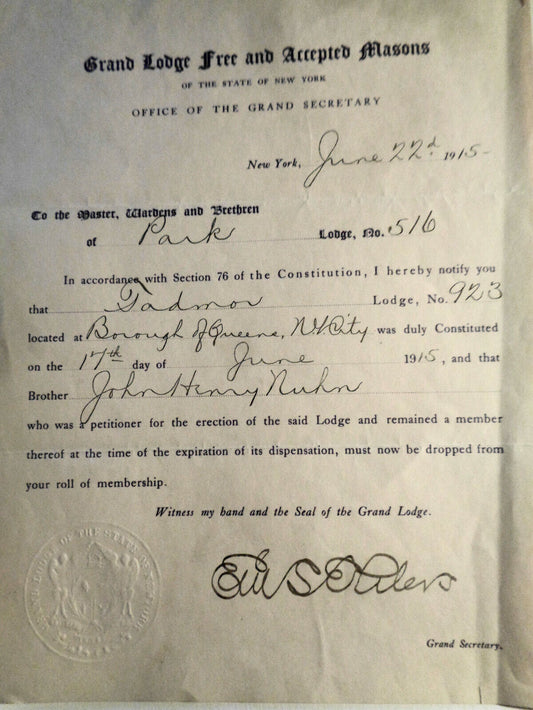 Grand Lodge Free and Accepted Masons
OF THE STATE OF NEW YORK
OFFICE OF THE GRAND SECRETARY
New York, June 22d. 1915
To the Master, Wardens and Brethren
of Park Lodge, No. 516
In accordance with Section 76 of the Constitution, I hereby notify you
that Tadmor Lodge, No. 923
located at Borough of Queens, N.Y. City was duly Constituted
on the 17th day of June 1915, and that
Brother John Henry Nuhn
who was a petitioner for the erection of the said Lodge and remained a member
thereof at the time of the expiration of its dispensation, must now be dropped from
your roll of membership.
Witness my hand and the Seal of the Grand Lodge.
Grand Secretary.
GRAND LODGE OF THE STATE OF NEW YORK